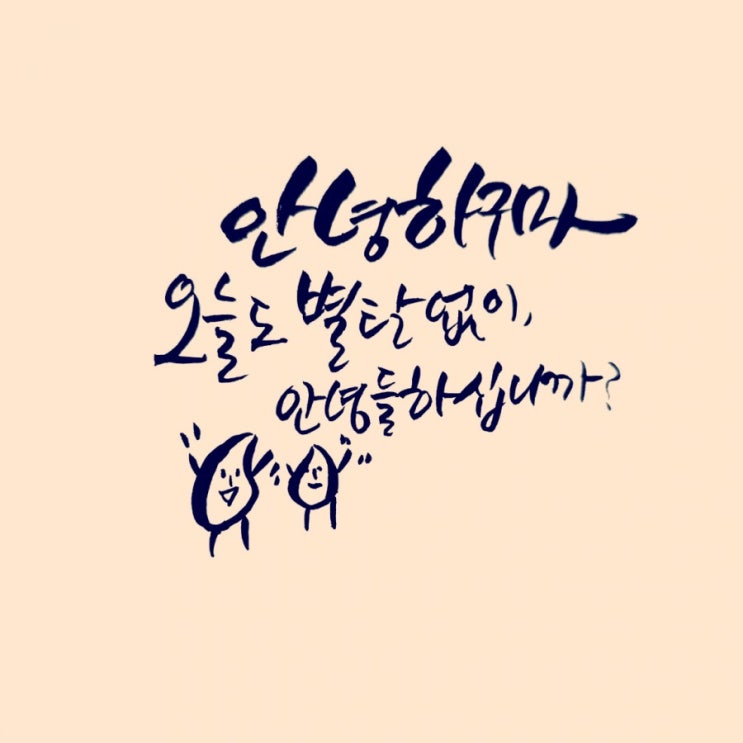 안녕하꾸마
오늘도 별탈 없이,
안녕들하십니까?